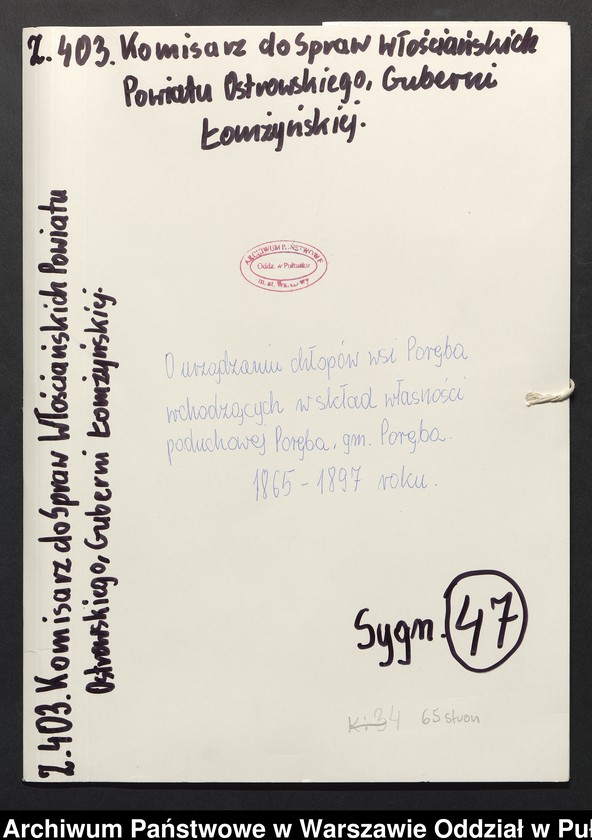 Z. 403. Komisarz do Spraw Włościańskich
Powiatu Ostrowskiego, Guberni
Łomżyńskiej.
ARCHIWUM PAŃSTWOWE
Oddz. w Pułtusku
m. st. Warszawy
O urządzaniu chłopów wsi Poręba
wchodzących w skład własności
poduchowej Poręba, gm. Poręba.
1865 - 1897 roku.
Sygn. 47
k. 34 65 stron
Z. 403. Komisarz do Spraw Włościańskich Powiatu
Ostrowskiego, Guberni Łomżyńskiej.
Archiwum Państwowe w Warszawie Oddział w Puł